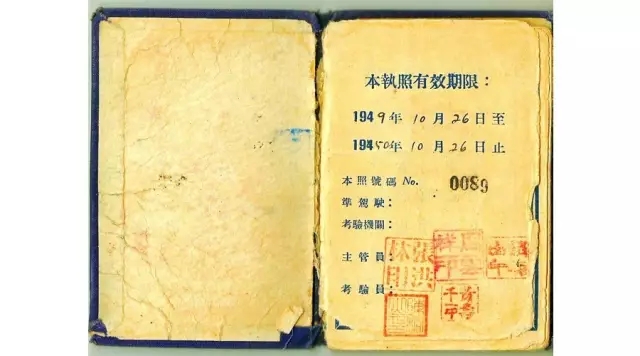 本執照有效期限：
1949年10月26日至
1950年10月26日止
本照號碼 No. 0089
準駕駛：
考驗機關：
主管員：
張洪林印
考驗員：